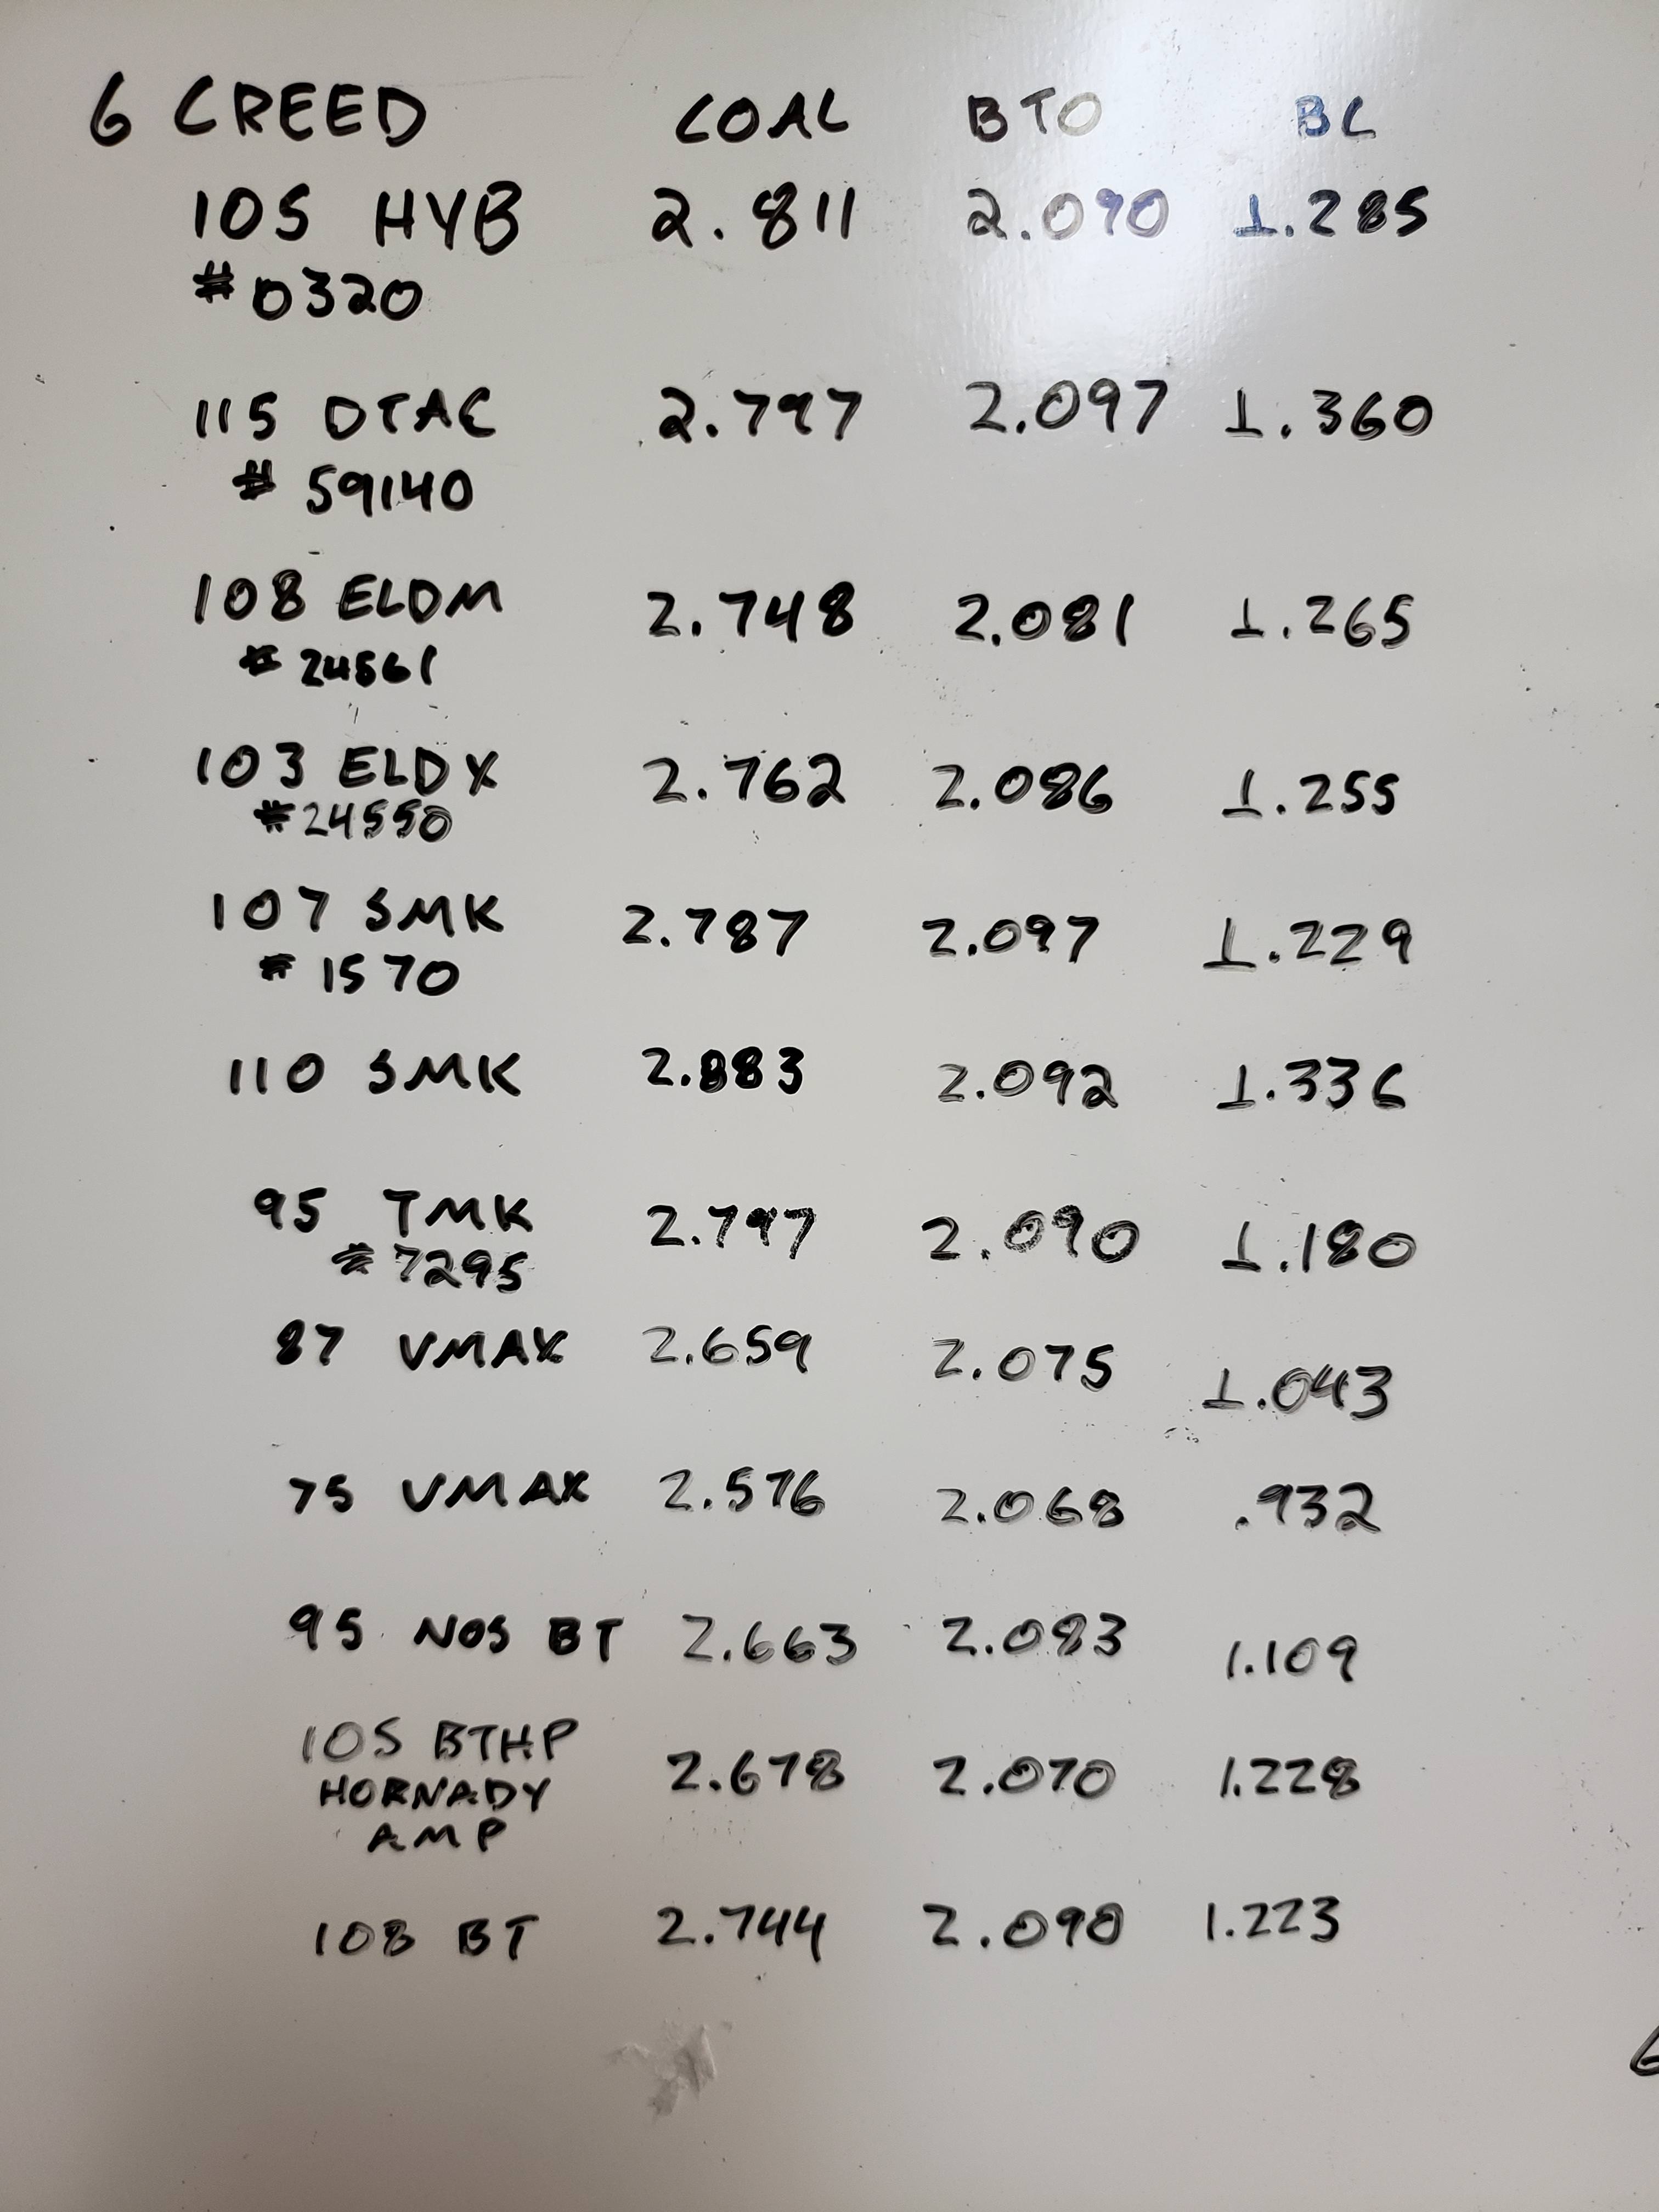 6 CREED COAL BTO BL
105 HYB 2.811 2.090 1.285
#0320
115 DTAC 2.797 2.097 1.360
# 59140
108 ELDM 2.748 2.081 1.265
# 24561
103 ELDX 2.762 2.086 1.255
#24550
107 SMK 2.787 2.097 1.229
# 1570
110 SMK 2.883 2.092 1.336
95 TMK 2.797 2.090 1.180
# 7295
87 VMAX 2.659 2.075 1.043
75 VMAX 2.576 2.068 .932
95 NOS BT 2.663 2.083 1.109
105 BTHP 2.678 2.070 1.228
HORNADY
AMP
108 BT 2.744 2.090 1.223